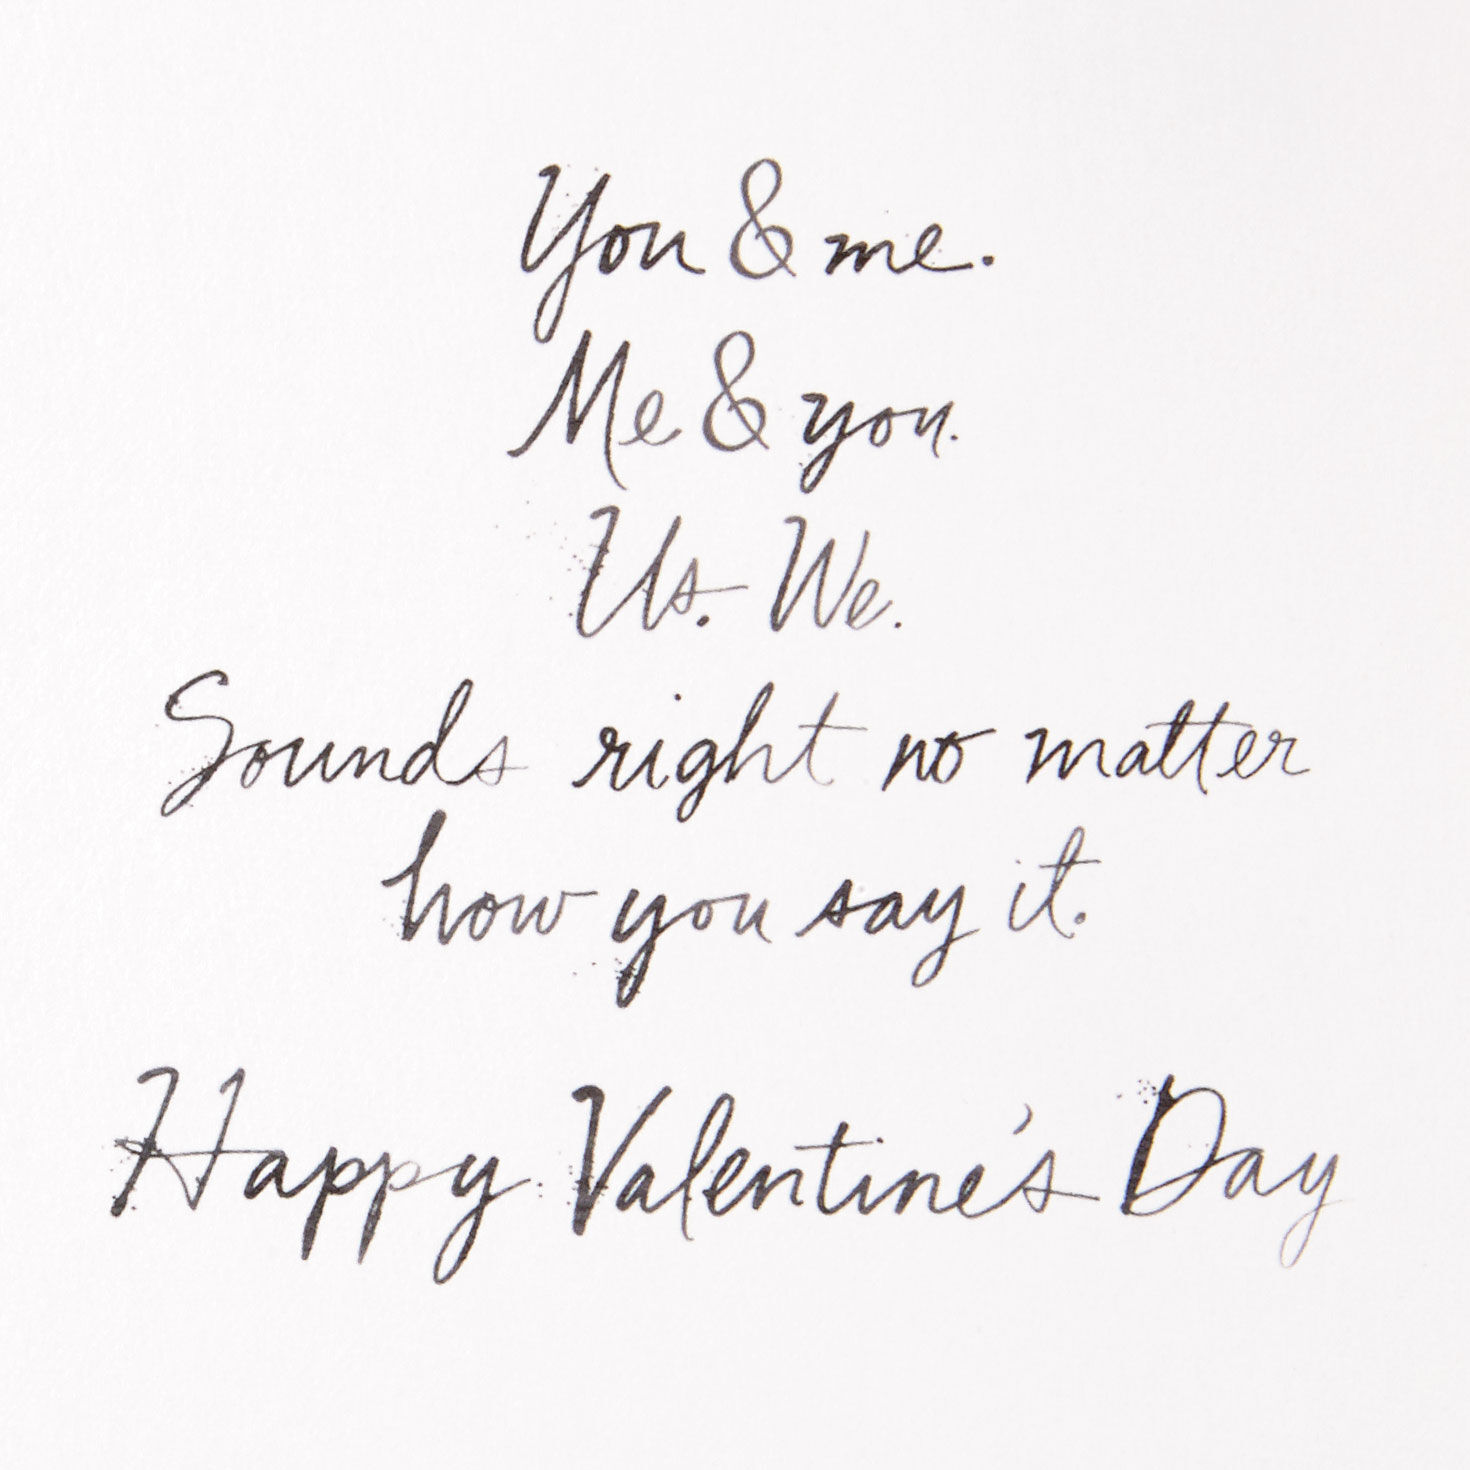 You & me.
Me & you.
Us. We.
Sounds right no matter
how you say it.
Happy Valentine's Day